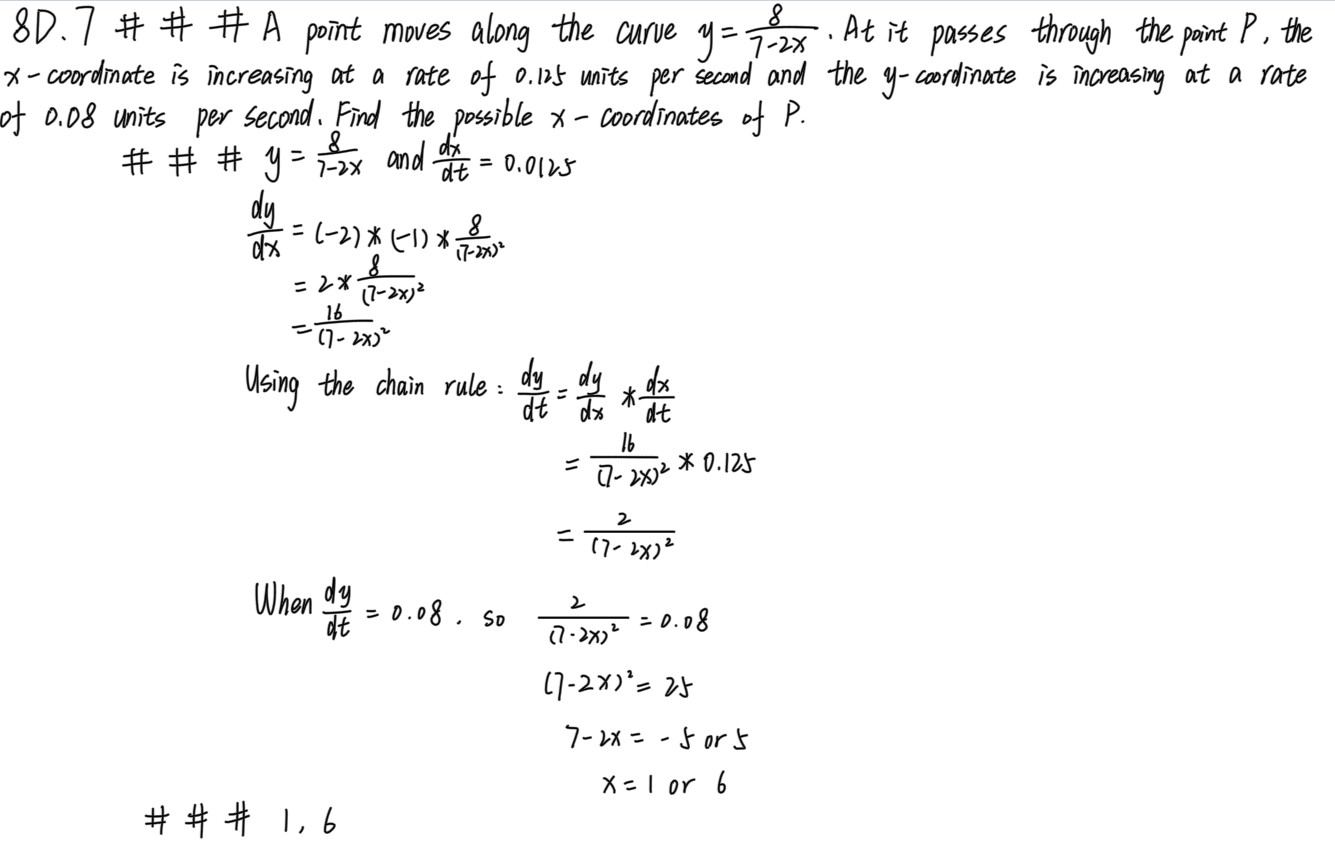 8D.7 # # # A point moves along the curve y = 8/(7-2x). At it passes through the point P, the
x-coordinate is increasing at a rate of 0.125 units per second and the y-coordinate is increasing at a rate
of 0.08 units per second. Find the possible x-coordinates of P.
# # # y = 8/(7-2x) and dx/dt = 0.0125
dy/dx = (-2) * (-1) * 8/(7-2x)²
= 2 * 8/(7-2x)²
= 16/(7-2x)²
Using the chain rule: dy/dt = dy/dx * dx/dt
= 16/(7-2x)² * 0.125
= 2/(7-2x)²
When dy/dt = 0.08. so 2/(7-2x)² = 0.08
(7-2x)² = 25
7-2x = -5 or 5
x = 1 or 6
# # # 1, 6